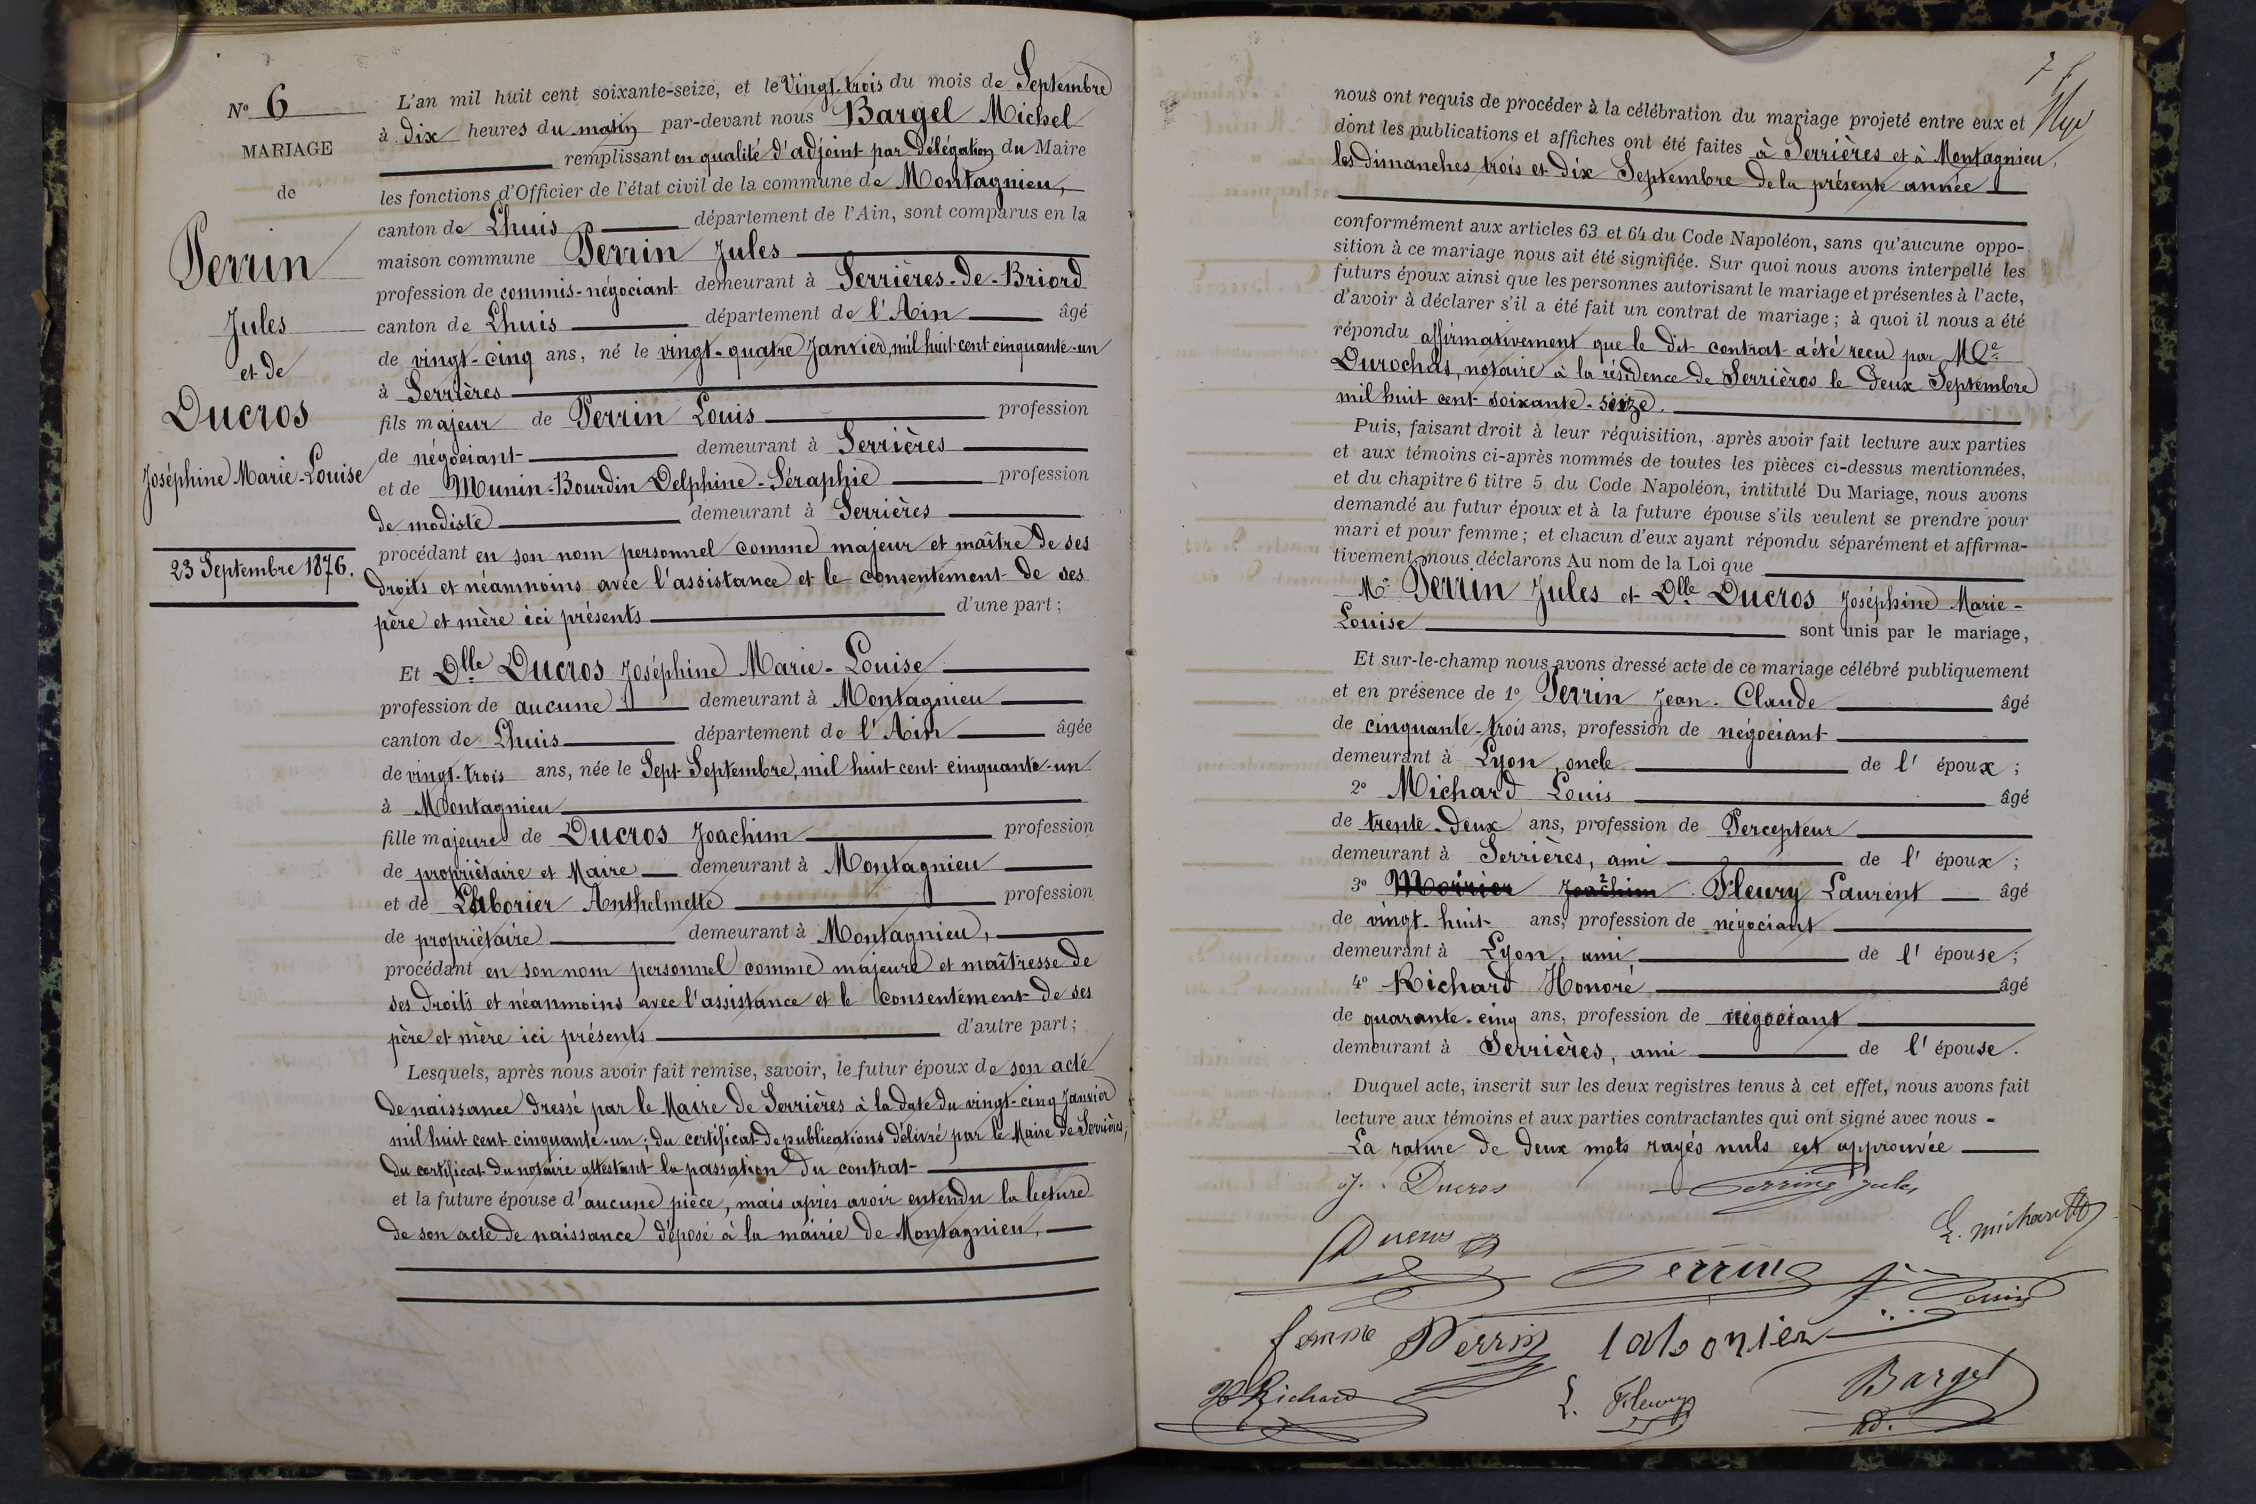 N° 6
MARIAGE
de
Perrin
Jules
et de
Ducros
Joséphine Marie-Louise
23 Septembre 1876.
L'an mil huit cent soixante-seize, et le Vingt-trois du mois de Septembre
à dix heures du matin par-devant nous Bargel Michel
remplissant en qualité d'adjoint par délégation du Maire
les fonctions d'Officier de l'état civil de la commune de Montagnieu,
canton de Lhuis département de l'Ain, sont comparus en la
maison commune Perrin Jules
profession de commis-négociant demeurant à Serrières-de-Briord
canton de Lhuis département de l'Ain âgé
de vingt-cinq ans, né le vingt-quatre Janvier, mil huit cent cinquante-un
à Serrières
fils majeur de Perrin Louis profession
de négociant demeurant à Serrières
et de Munin-Bourdin Delphine-Séraphie profession
de modiste demeurant à Serrières
procédant en son nom personnel comme majeur et maître de ses
droits et néanmoins avec l'assistance et le consentement de ses
père et mère ici présents d'une part ;
Et Dlle Ducros Joséphine Marie-Louise
profession de aucune demeurant à Montagnieu
canton de Lhuis département de l'Ain âgée
de vingt-trois ans, née le Sept Septembre, mil huit cent cinquante-un
à Montagnieu
fille majeure de Ducros Joachim profession
de propriétaire et Maire demeurant à Montagnieu
et de Laborier Anthelmette profession
de propriétaire demeurant à Montagnieu,
procédant en son nom personnel comme majeure et maîtresse de
ses droits et néanmoins avec l'assistance et le consentement de ses
père et mère ici présents d'autre part ;
Lesquels, après nous avoir fait remise, savoir, le futur époux de son acte
de naissance dressé par le Maire de Serrières à la date du vingt-cinq Janvier
mil huit cent cinquante-un ; du certificat de publications délivré par le Maire de Serrières,
du certificat du notaire attestant la passation du contrat
et la future épouse d'aucune pièce, mais après avoir entendu la lecture
de son acte de naissance déposé à la mairie de Montagnieu.
7
nous ont requis de procéder à la célébration du mariage projeté entre eux et
dont les publications et affiches ont été faites à Serrières et à Montagnieu,
les dimanches trois et dix Septembre de la présente année
conformément aux articles 63 et 64 du Code Napoléon, sans qu'aucune oppo-
sition à ce mariage nous ait été signifiée. Sur quoi nous avons interpellé les
futurs époux ainsi que les personnes autorisant le mariage et présentes à l'acte,
d'avoir à déclarer s'il a été fait un contrat de mariage ; à quoi il nous a été
répondu affirmativement que le dit contrat a été reçu par Me
Durochat, notaire à la résidence de Serrières le deux Septembre
mil huit cent soixante-seize.
Puis, faisant droit à leur réquisition, après avoir fait lecture aux parties
et aux témoins ci-après nommés de toutes les pièces ci-dessus mentionnées,
et du chapitre 6 titre 5 du Code Napoléon, intitulé Du Mariage, nous avons
demandé au futur époux et à la future épouse s'ils veulent se prendre pour
mari et pour femme ; et chacun d'eux ayant répondu séparément et affirma-
tivement, nous déclarons Au nom de la Loi que
Mr Perrin Jules et Dlle Ducros Joséphine Marie-
Louise sont unis par le mariage,
Et sur-le-champ nous avons dressé acte de ce mariage célébré publiquement
et en présence de 1° Perrin Jean-Claude âgé
de cinquante-trois ans, profession de négociant
demeurant à Lyon, oncle de l'époux ;
2° Michard Louis âgé
de trente-deux ans, profession de Percepteur
demeurant à Serrières, ami de l'époux ;
3° Morrier Joachim 2 Fleury Laurent âgé
de vingt-huit ans, profession de négociant
demeurant à Lyon, ami de l'épouse ;
4° Richard Honoré, âgé
de quarante-cinq ans, profession de négociant
demeurant à Serrières, ami de l'épouse.
Duquel acte, inscrit sur les deux registres tenus à cet effet, nous avons fait
lecture aux témoins et aux parties contractantes qui ont signé avec nous -
La rature de deux mots rayés nuls est approuvée
J. Ducros Perrin Jules
L. michard
Ducros Perrin
Perrin
femme Perrin laborier
H Richard L. Fleury Bargel
ad.